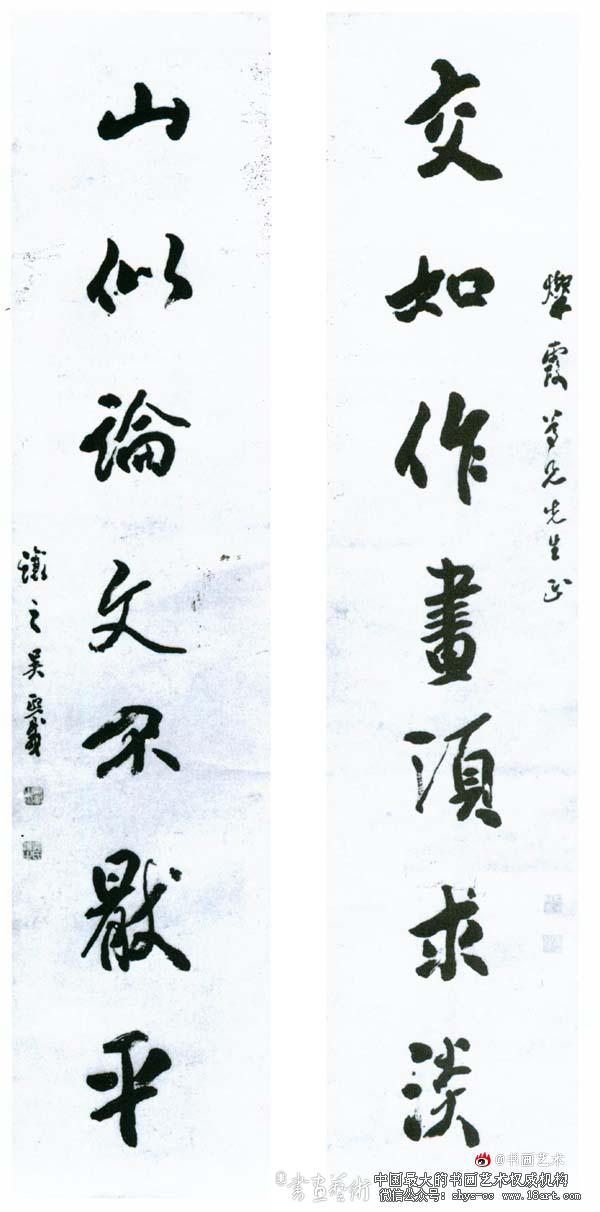 燦霞尊兄先生正
交如作畫須求淡
山似論文不猒平
讓之吳熙載
@书画艺术
©书画藝術
中国最大的书画艺术权威机构
微信公众号：shys-cc www.18art.com